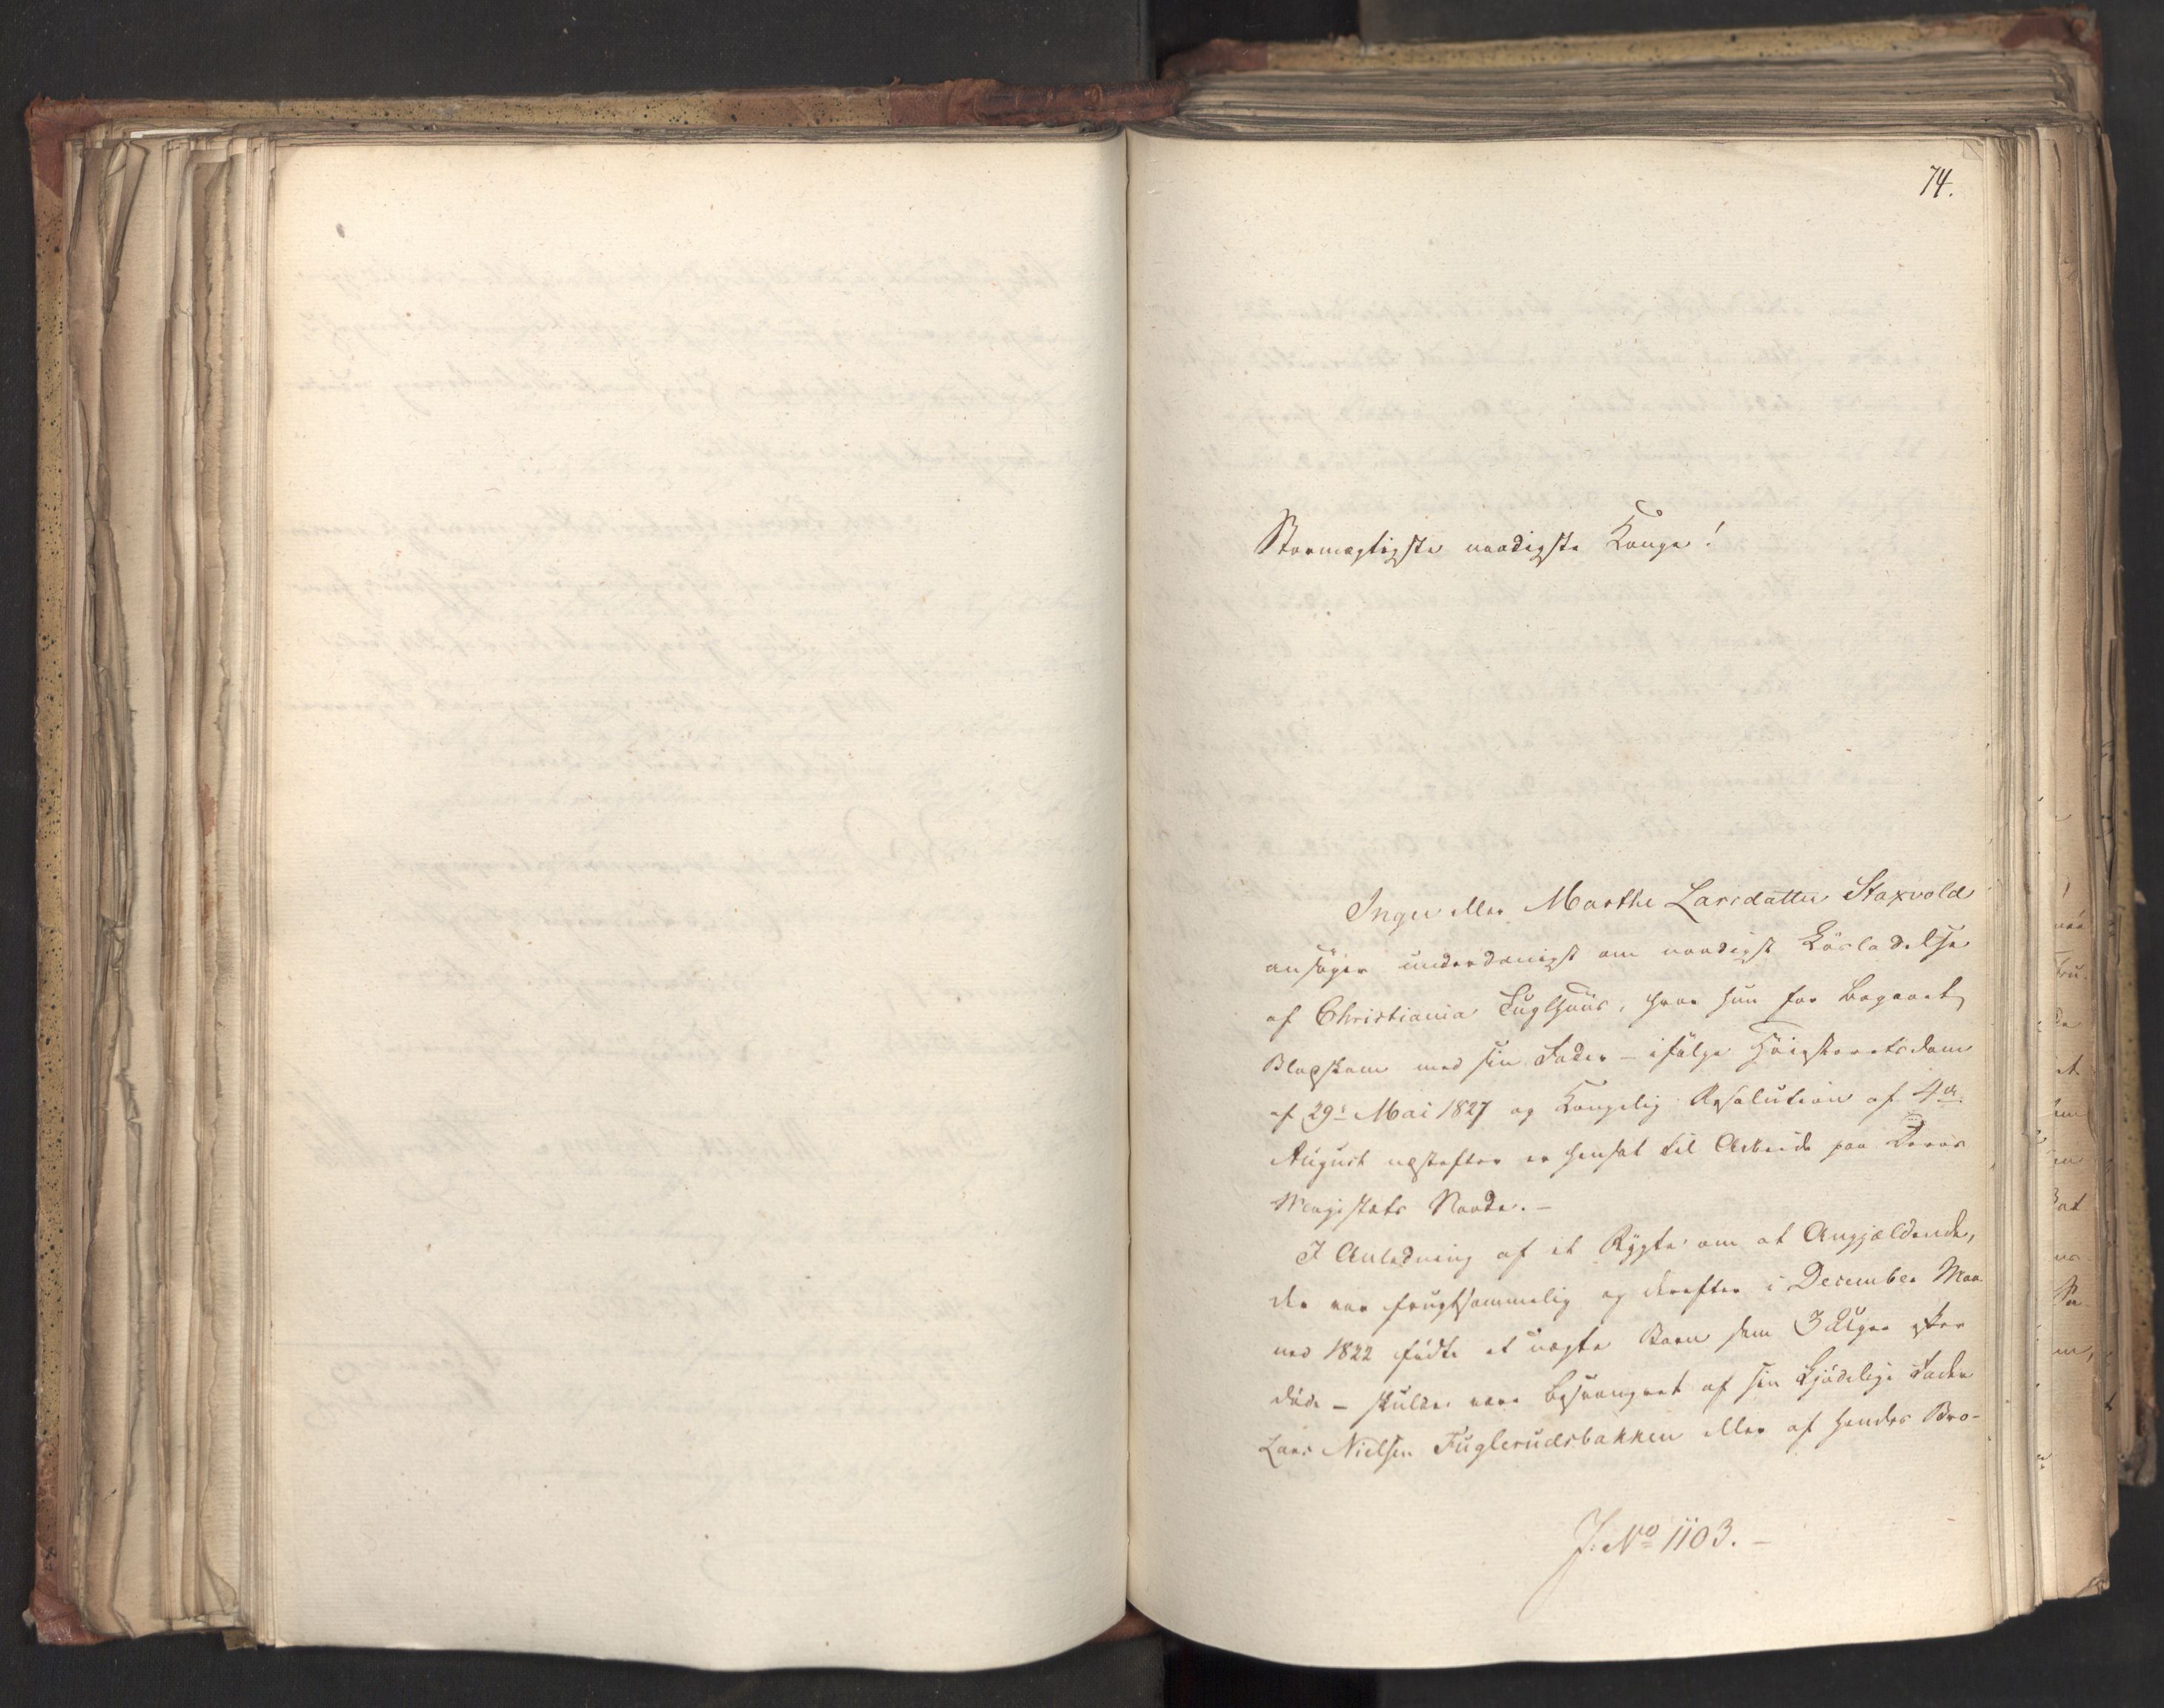 74.
Stormægtigste naadigste Konge!
Inger eller Marthe Larsdatter Staxvold
ansøger underdanigst om naadigst Løsladelse
af Christiania Tugthuus, hvor hun for begaaet
Blodskam med sin Fader – ifølge Høiesteretsdom
af 29: Mai 1827 og Kongelig Resolution af 4de
August næstefter er hensat til Arbeide paa Deres
Majestæts Naade. –
I Anledning af et Rygte om at Angjældende,
der var frugtsommelig og derefter i December Maa
ned 1822 fødte et uægte Barn som 3 Uger efter
døde – skulde være besvangret af sin kjødelige Fader
Lars Nielsen Fuglerudsbakken eller af hendes Bro-
J. No 1103. –